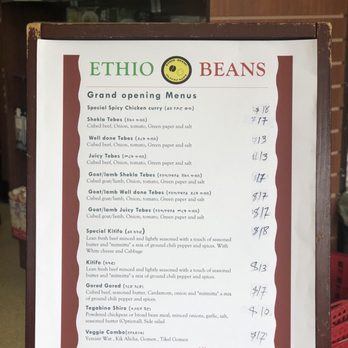 ETHIO BEANS
Grand opening Menus
Special Spicy Chicken curry
$18
Shekla Tebes
$17
Cubed beef, Onion, tomato, Green paper and salt
Well done Tebes
$13
Cubed beef, Onion, tomato, Green paper and salt
Juicy Tebes
$13
Cubed beef, Onion, tomato, Green paper and salt
Goat/lamb Shekla Tebes
$17
Cubed goat/lamb, Onion, tomato, Green paper and salt
Goat/lamb Well done Tebes
$17
Cubed goat/lamb, Onion, tomato, Green paper and salt
Goat/lamb Juicy Tebes
$17
Cubed goat/lamb, onion, tomato, Green paper and salt
Special Kitifo
$18
Lean fresh beef minced and lightly seasoned with a touch of seasoned
butter and "mitmita" a mix of ground chili pepper and spices. With
White cheese and Cabbage
Kitifo
$13
Lean fresh beef minced and lightly seasoned with a touch of seasoned
butter and "mitmita" a mix of ground chili pepper and spices.
Gored Gored
$17
Cubed beef, seasoned butter, Cardamom, onion and "mitmita" a mix
of ground chili pepper and spices.
Tegabino Shiro
$10
Powdered chickpeas or broad bean meal, minced onions, garlic, salt,
seasoned butter (Optional), Side salad
Veggie Combo
$12
Yemisir Wat , Kik Alicha, Gomen , Tikel Gomen